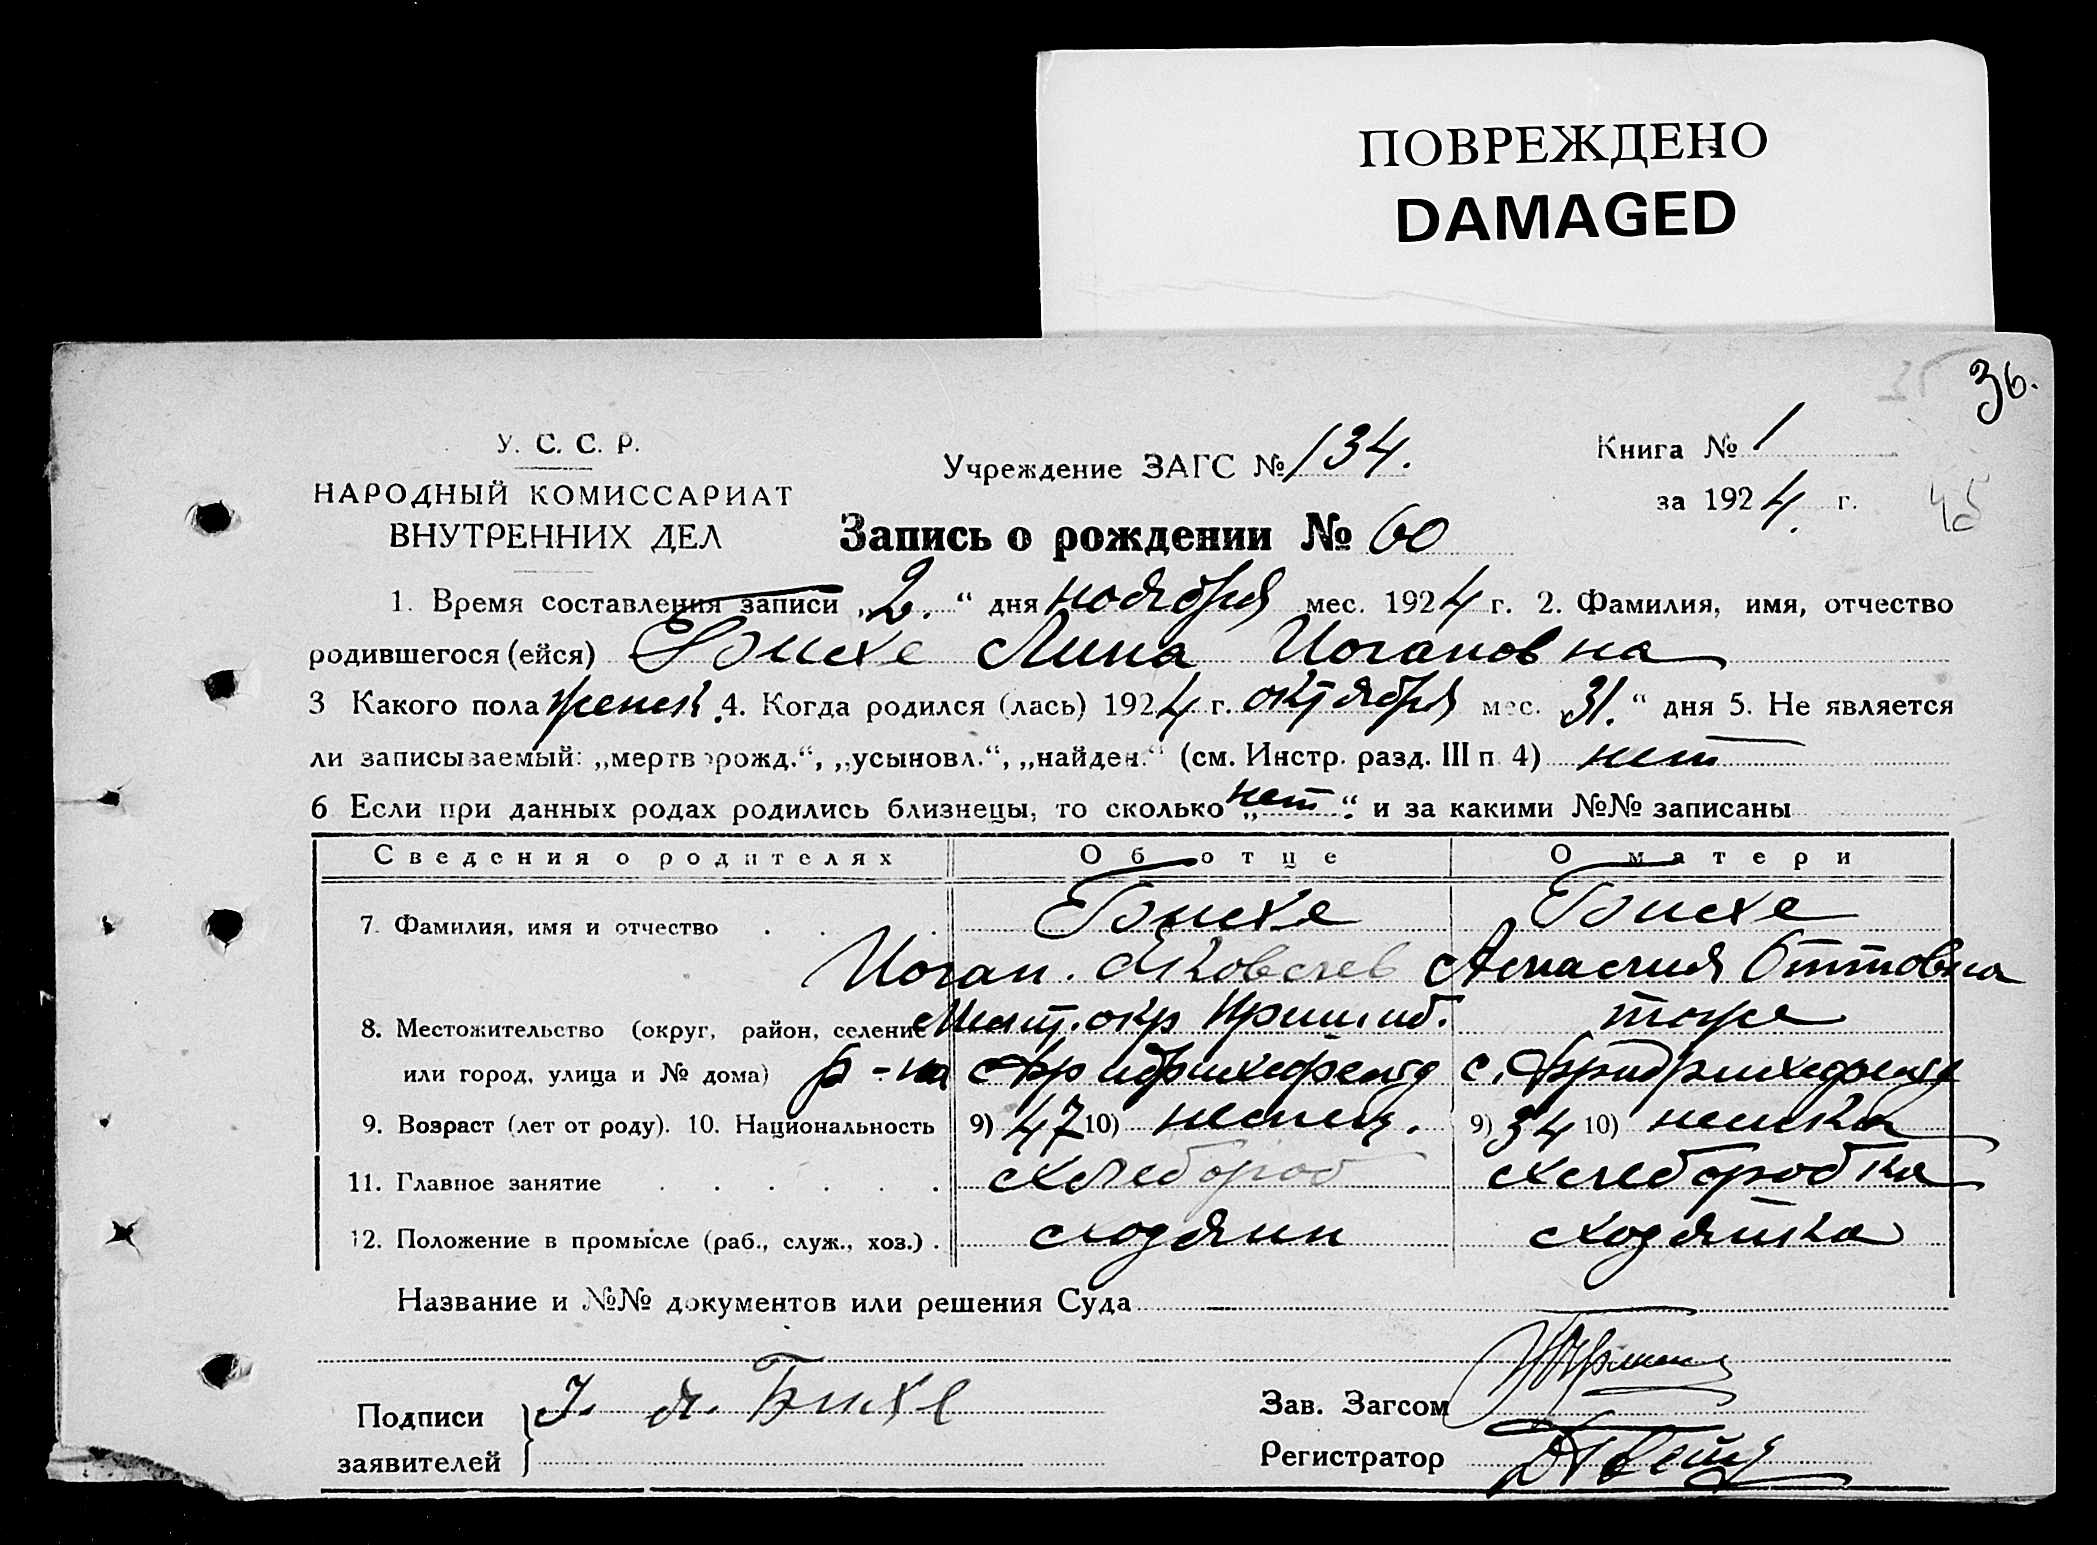 ПОВРЕЖДЕНО
DAMAGED
36.
У. С. С. Р.
НАРОДНЫЙ КОМИССАРИАТ
ВНУТРЕННИХ ДЕЛ
Учреждение ЗАГС № 134.
Книга № 1
за 1924 г.
45
Запись о рождении № 60
1. Время составления записи „2.“ дня ноября мес. 1924 г. 2. Фамилия, имя, отчество
родившегося (ейся) Биске Лина Иогановна
3 Какого пола женск. 4. Когда родился (лась) 1924 г. октября мес. „31.“ дня 5. Не является
ли записываемый: „мертворожд.“, „усыновл.“, „найден.“ (см. Инстр. разд. III п 4) нет
6 Если при данных родах родились близнецы, то сколько „нет“ и за какими №№ записаны
Сведения о родителях Об отце О матери
7. Фамилия, имя и отчество Биске Биске
Иоган. Яковлев Оттовна
8. Местожительство (округ, район, селение Мелит. окр Пришиб. тоже
или город, улица и № дома) р-на с Фридрихсфельд с. Фридрихсфельд
9. Возраст (лет от роду). 10. Национальность 9) 47 10) немец. 9) 34 10) немка
11. Главное занятие хлебороб хлеборобка
12. Положение в промысле (раб., служ., хоз.) хозяин хозяйка
Название и №№ документов или решения Суда
Подписи
заявителей
И. Я. Биске
Зав. Загсом
Регистратор